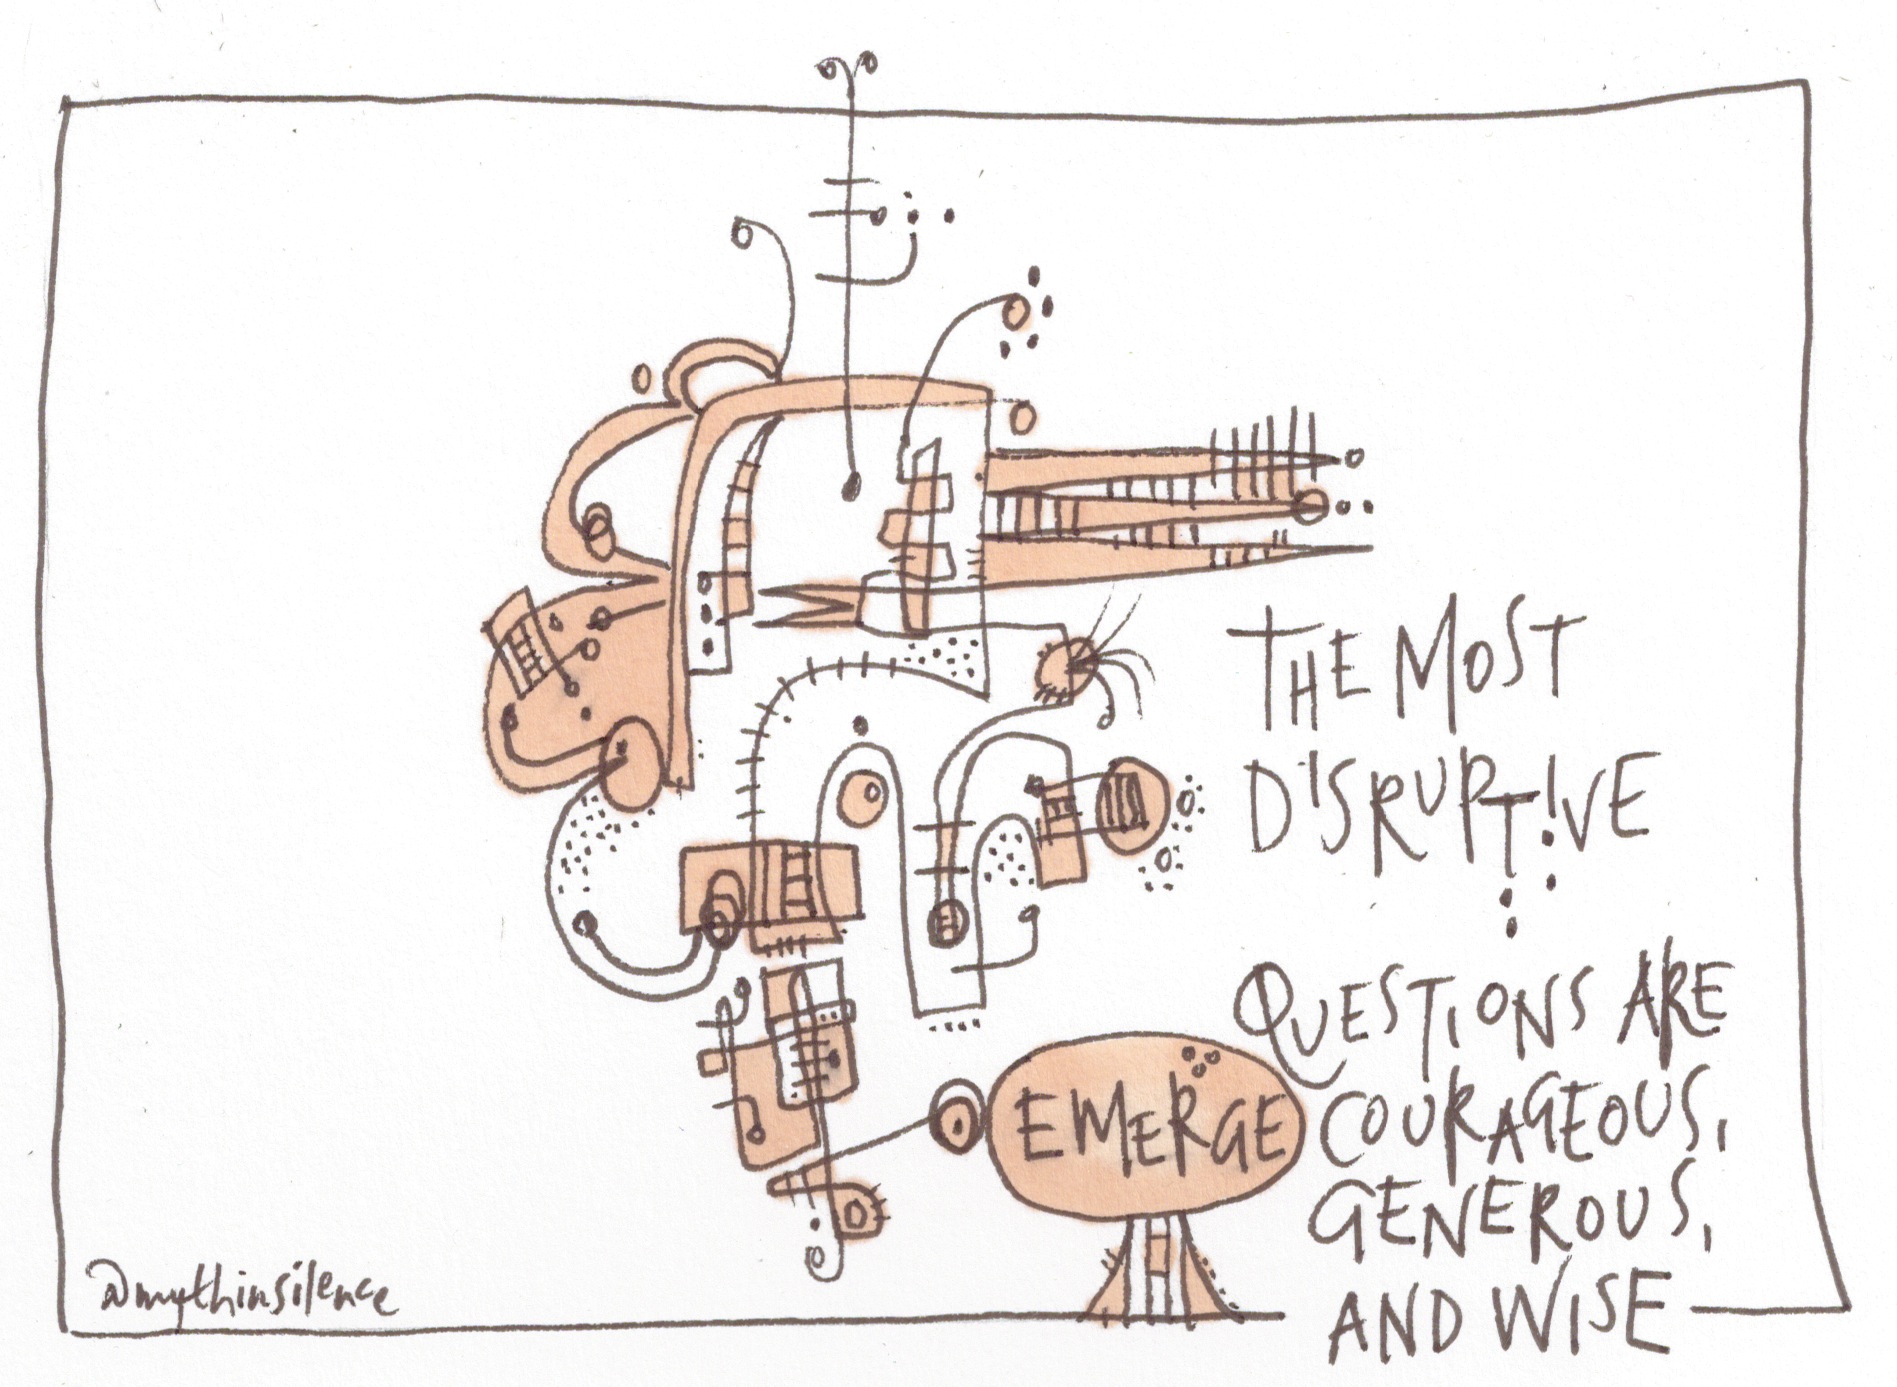 THE MOST
DISRUPTIVE
QUESTIONS ARE
COURAGEOUS,
GENEROUS,
AND WISE
EMERGE
@mythinsilence